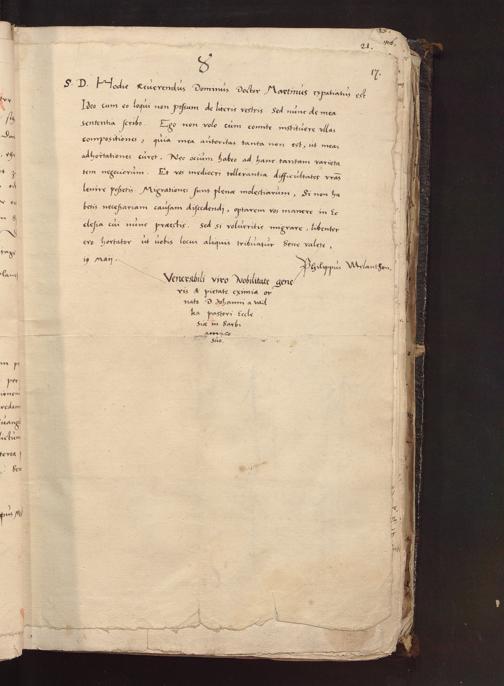 21.
8
17.
S. D. Hodie Reuerendus Dominus Doctor Martinus expatiatus est
Ideo cum eo loqui non possum de literis vestris sed nunc de mea
sententia scribo. Ego non volo cum comite instituere ullas
compositiones, quia mea autoritas tanta non est, ut meas
adhortationes curet. Nec ocium habeo ad hanc tantam varieta
tem negociorum. Et vos mediocri tollerantia difficultates vras
lenire potestis. Migrationes sunt plenæ molestiarum, Si non ha
betis necessariam causam discedendi, optarem vos manere in Ec
clesia cui nunc praeestis. Sed si volueritis migrare, libenter
ero hortator ut uobis locus aliquis tribuatur Bene valete,
19 Maij.
Philippus Melanthon.
Venerabili viro Nobilitate gene
ris & pietate eximia or
nato D. Johanni a
pastori Eccle
siæ in Barbi
amico
suo.